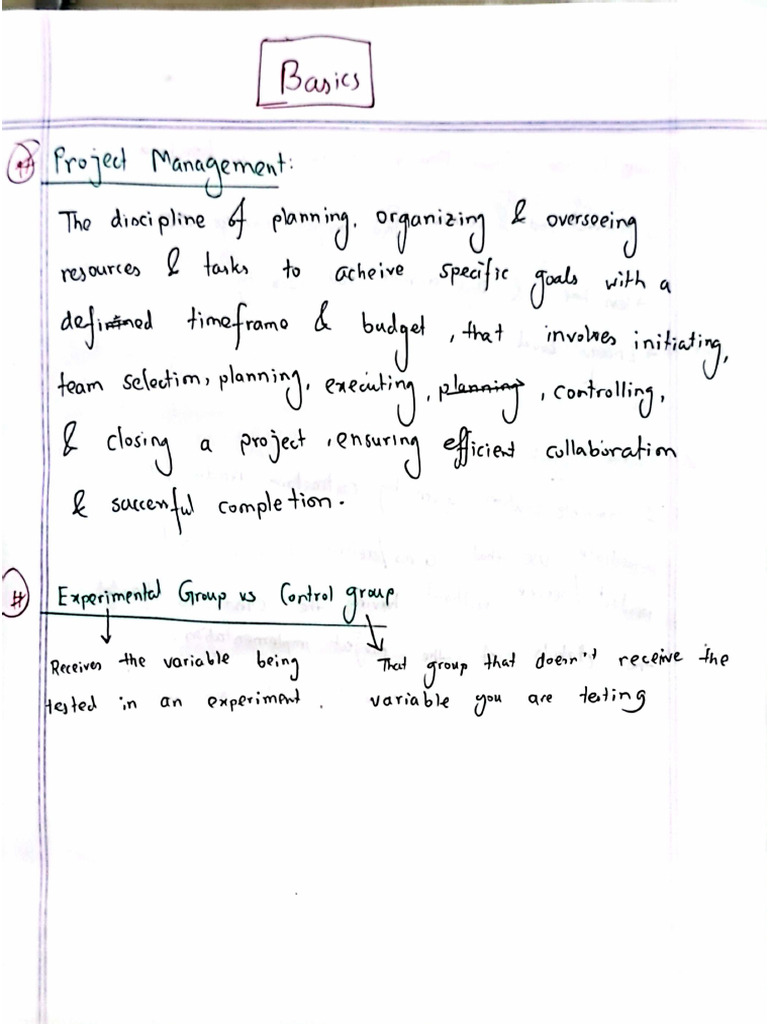 Basics
# Project Management:
The discipline of planning, organizing & overseeing
resources & tasks to acheive specific goals with a
defined timeframe & budget, that involves initiating,
team selection, planning, executing, planning, controlling,
& closing a project, ensuring efficient collaboration
& successful completion.
# Experimental Group vs Control group
Receives the variable being
tested in an experiment.
That group that doesn't receive the
variable you are testing